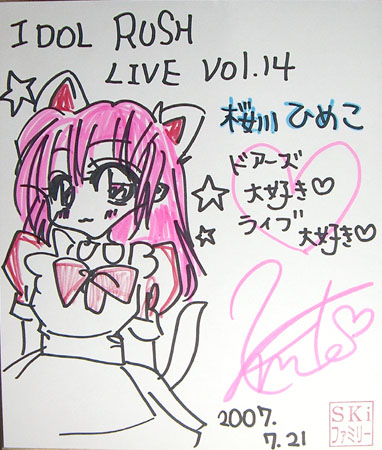 IDOL RUSH
LIVE VOL.14
桜川ひめこ
ドアーズ
大好き♡
ライブ
大好き♡
2007.
7.21
SKi
ファミリー